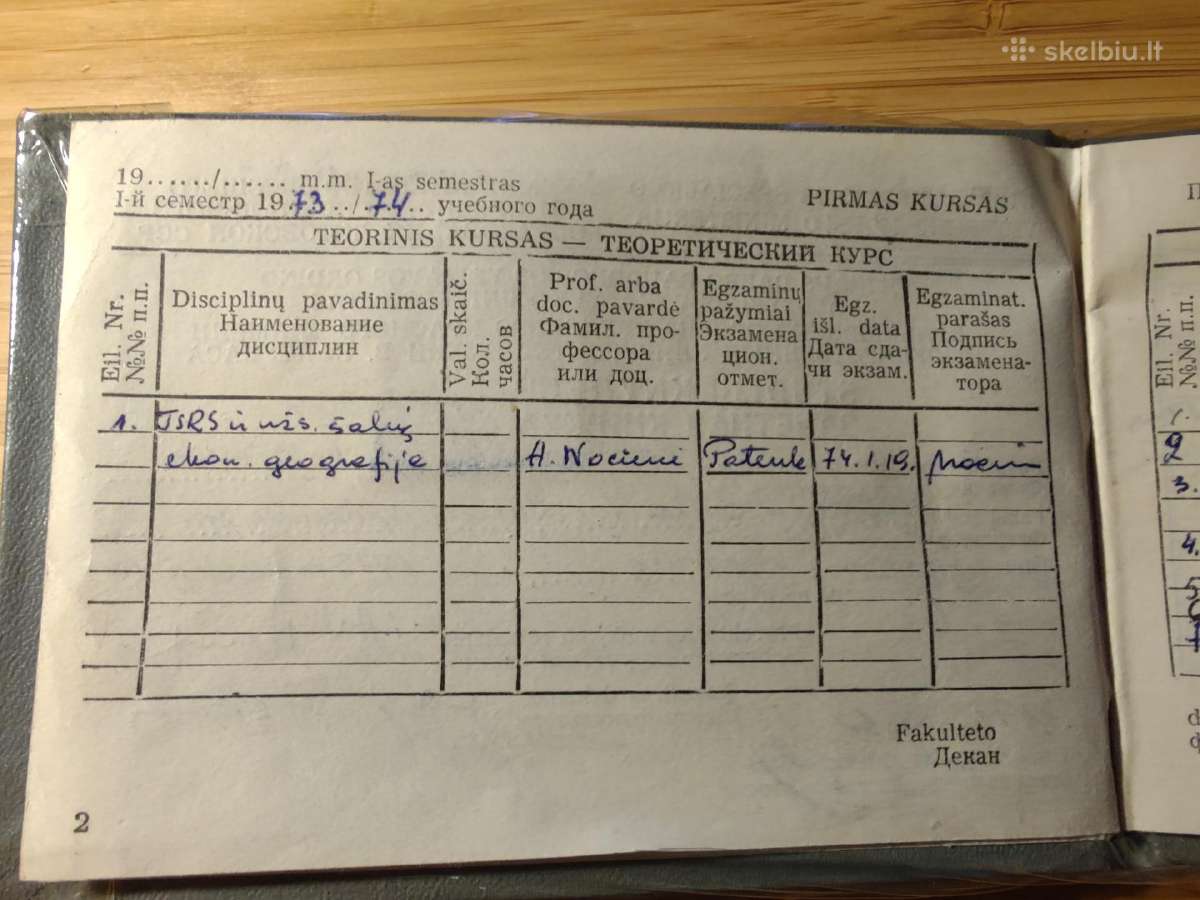 skelbiu.lt
19....../...... m.m. I-as semestras
I-й семестр 19 73../.74.. учебного года
PIRMAS KURSAS
TEORINIS KURSAS — ТЕОРЕТИЧЕСКИЙ КУРС
Eil. Nr.
№№ п.п.
Disciplinų pavadinimas
Наименование
дисциплин
Val. skaič.
Кол.
часов
Prof. arba
doc. pavardė
Фамил. про-
фессора
или доц.
Egzaminų
pažymiai
Экзамена
цион.
отмет.
Egz.
išl. data
Дата сда-
чи экзам.
Egzaminat.
parašas
Подпись
экзамена-
тора
1. TSRS ir už. šalių
ekon. geografija A. Nocienė Patenk 74.I.19.
Fakulteto
Декан
2
Eil. Nr.
№№ п.п.
2
3.
4.
5